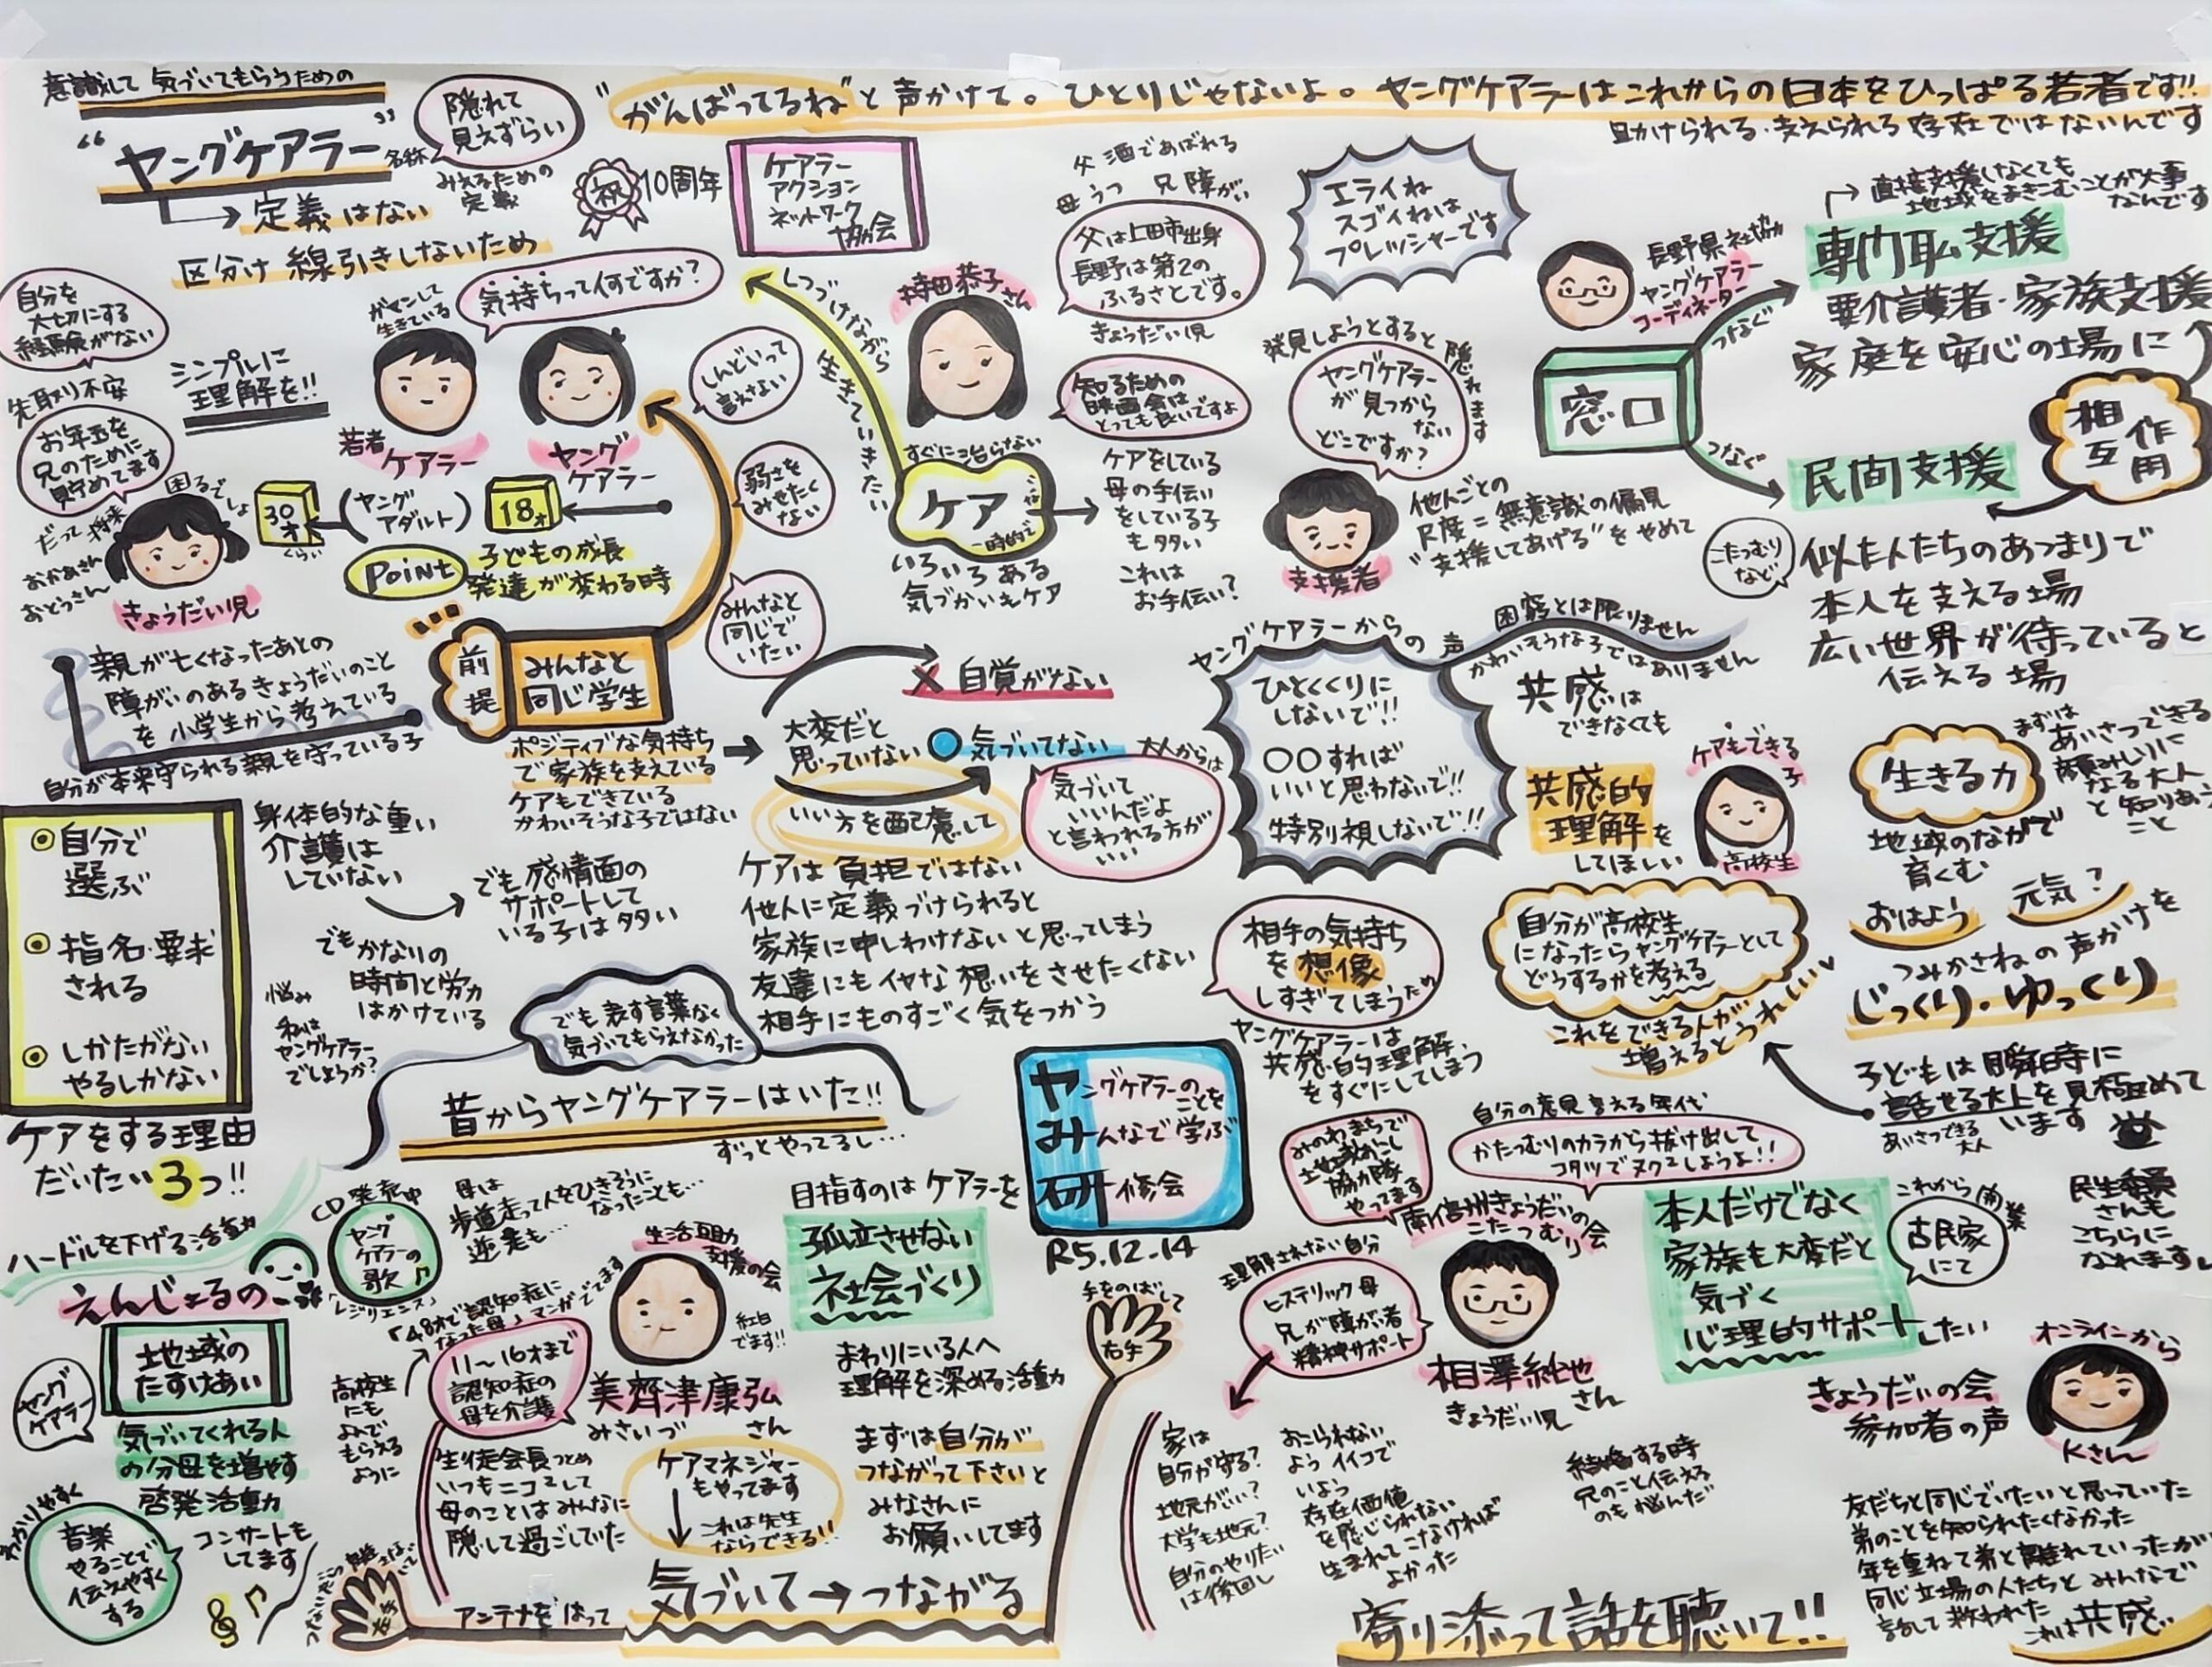 意識して 気づいてもらうための
“ヤングケアラー” 名称
隠れて
見えずらい
みえるための
定義
定義はない
区分け 線引きしないため
“がんばってるね”と声かけて。ひとりじゃないよ。ヤングケアラーはこれからの日本をひっぱる若者です!!
助けられる・支えられる存在ではないんです
祝
10周年
ケアラー
アクション
ネットワーク
協会
父 酒であばれる
母 うつ 兄 障がい
父は上田市出身
長野は第2の
ふるさとです。
持田恭子さん
きょうだい児
知るための
映画会は
とっても良いですよ
エライね
スゴイねは
プレッシャーです
長野県社協
ヤングケアラー
コーディネーター
直接支援しなくても
地域をまきこむことが大事
なんです
専門職支援
要介護者・家族支援
家庭を安心の場に
つなぐ
窓口
つなぐ
民間支援
相互作用
こたつむり
など
似た人たちのあつまりで
本人を支える場
広い世界が待っていると
伝える場
自分を
大切にする
経験がない
先取り不安
シンプルに
理解を!!
お年玉を
兄のために
貯めてます
困るでしょ
だって将来
おかあさん
おとうさん
きょうだい児
ガマンして
生きている
気持ちって何ですか?
若者
ケアラー
ヤング
ケアラー
30才
くらい
(ヤング
アダルト)
18才
Point
子どもの成長
発達が変わる時
しんどいって
言えない
弱さを
みせたく
ない
みんなと
同じで
いたい
しつづけながら
生きていきたい
すぐに治らない
ケア
一時的で
いろいろある
気づかいもケア
ケアをしている
母の手伝い
をしている子
も多い
これは
お手伝い?
発見しようとすると
隠れます
ヤングケアラー
が見つから
ない
どこですか?
支援者
他人ごとの
尺度=無意識の偏見
“支援してあげる”をやめて
親が亡くなったあとの
障がいのあるきょうだいのこと
を小学生から考えている
自分が本来守られる親を守っている子
前提
みんなと
同じ学生
ポジティブな気持ち
で家族を支えている
ケアもできている
かわいそうな子ではない
大変だと
思っていない
× 自覚がない
気づいてない
いい方を配慮して
大人からは
気づいて
いいんだよ
と言われる方が
いい
ヤングケアラーからの声
ひとくくりに
しないで!!
〇〇すれば
いいと思わないで!!
特別視しないで!!
困窮とは限りません
かわいそうな子ではありません
共感は
できなくても
共感的
理解を
してほしい
ケアもできる子
高校生
生きる力
まずは
あいさつできる
顔みしりに
なる大人
と知りあう
こと
地域のなかで
育くむ
おはよう
元気?
つみかさねの声かけを
じっくり・ゆっくり
自分で
選ぶ
指名・要求
される
しかたがない
やるしかない
ケアをする理由
だいたい3つ!!
身体的な重い
介護は
していない
でも感情面の
サポートして
いる子は多い
でもかなりの
時間と労力
はかけている
悩み
私は
ヤングケアラー
でしょうか?
ケアは負担ではない
他人に定義づけられると
家族に申しわけないと思ってしまう
友達にもイヤな想いをさせたくない
相手にものすごく気をつかう
でも表す言葉なく
気づいてもらえなかった
昔からヤングケアラーはいた!!
ずっとやってるし…
相手の気持ち
を想像
しすぎてしまうため
ヤングケアラーは
共感的理解
をすぐにしてしまう
自分が高校生
になったらヤングケアラーとして
どうするかを考える
これをできる人が
増えるとうれしい
子どもは瞬時に
話せる大人を見極めて
います
あいさつできる
大人
民生委員
さんも
こちらに
なれます
ヤングケアラーのことを
みんなで学ぶ
研修会
R5.12.14
みのわまちで
地域おこし
協力隊
やってます
自分の意見言える年代
かたつむりのカラから抜け出して
コタツでヌクヌクしようよ!!
南信州きょうだいの会
こたつむり
本人だけでなく
家族も大変だと
気づく
心理的サポートしたい
これから開業
古民家
にて
ハードルを下げる活動
えんじょるの
地域の
たすけあい
ヤング
ケアラー
気づいてくれる人
の分母を増やす
啓発活動
わかりやすく
音楽
やることで
伝えやすく
する
コンサートも
してます
CD発売中
ヤング
ケアラーの
歌
「レジリエンス」
母は
歩道走って人をひきそうに
なったことも…
逆走も…
「48才で認知症に
なった母」マンガででます
高校生
にも
よんで
もらえる
ように
11〜16才まで
認知症の
母を介護
生活援助
支援の会
紅白
でます!!
美齊津康弘
みさいづ さん
生徒会長つとめ
いつもニコニコして
母のことはみんなに
隠して過ごしていた
ケアマネジャー
もやってます
これは先生
ならできる!!
目指すのはケアラーを
孤立させない
社会づくり
まわりにいる人へ
理解を深める活動
まずは自分が
つながって下さいと
みなさんに
お願いしてます
手をのばして
右手
左手
アンテナをはって
気づいて→つながる
理解されない自分
ヒステリック母
兄が障がい者
精神サポート
相澤純也
さん
きょうだい児
家は
自分が守る?
地元がいい?
大学も地元?
自分のやりたい
は後回し
おこられない
ようイイコで
いよう
存在価値
を感じられない
生まれてこなければ
よかった
結婚する時
兄のこと伝える
のも悩んだ
オンラインから
きょうだいの会
参加者の声
Kさん
友だちと同じでいたいと思っていた
弟のことを知られたくなかった
年を重ねて弟と離れていったが
同じ立場の人たちとみんなで
話して救われた
これは共感
寄り添って話を聴いて!!